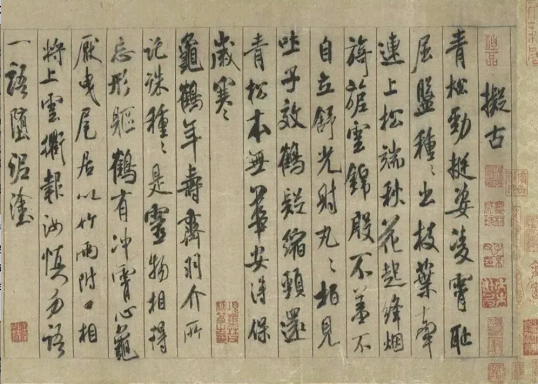 擬古
青松勁挺姿凌霄恥
屈盤種々出枝葉牽
連上松端秋花起絳烟
旖旎雲錦殷不羞不
自立舒光射丸々柏見
吐子效鶴疑縮頸還
青松本無華安得保
歲寒
龜鶴年壽齊羽介所
託殊種々是靈物相得
忘形軀鶴有沖霄心龜
厭曳尾居以竹兩附口相
將上雲衢報汝慎勿語
一語墮泥塗